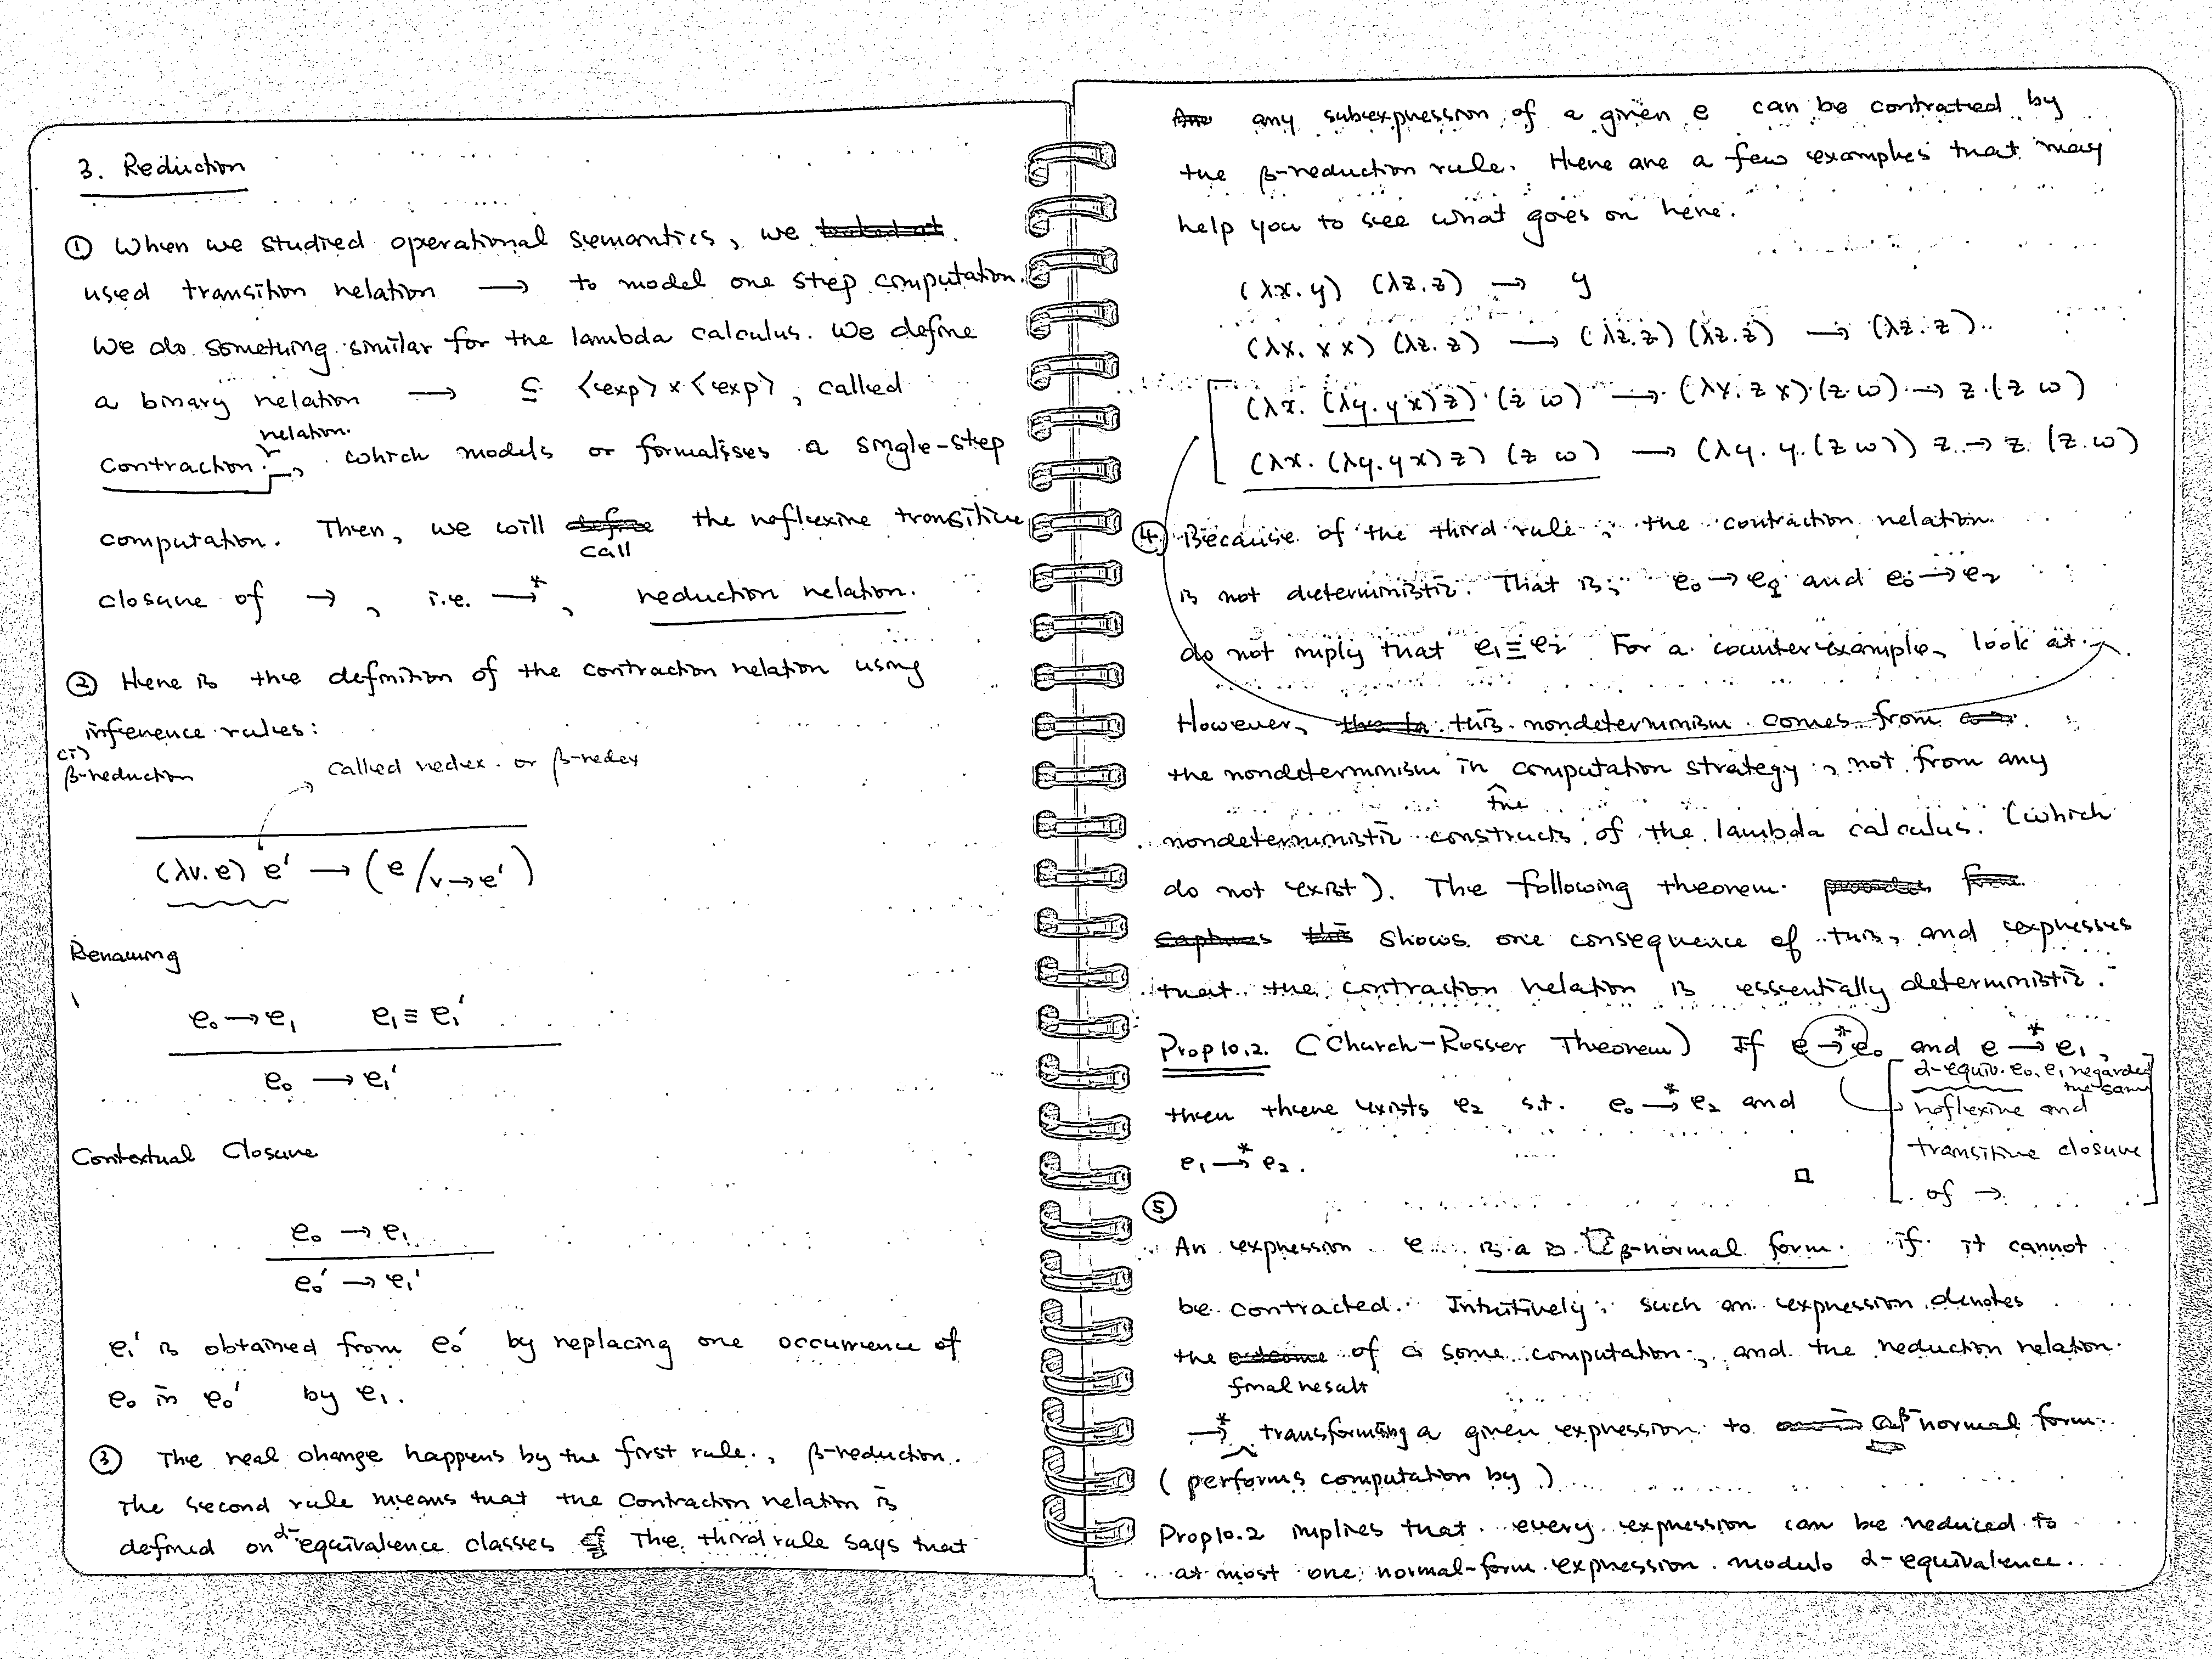 3. Reduction
① When we studied operational semantics, we
used transition relation → to model one step computation.
We do something similar for the lambda calculus. We define
a binary relation → ⊆ ⟨exp⟩ × ⟨exp⟩, called
relation
contraction → which models or formalises a single-step
computation. Then, we will define the reflexive transitive
call
closure of →, i.e. →*, reduction relation.
② Here is the definition of the contraction relation using
inference rules:
(i)
β-reduction
called redex or β-redex
(λv.e) e' → (e/v→e')
Renaming
e₀ → e₁    e₁ ≡ e₁'
e₀ → e₁'
Contextual Closure
e₀ → e₁
e₀' → e₁'
e₁' is obtained from e₀' by replacing one occurrence of
e₀ in e₀' by e₁.
③ The real change happens by the first rule, β-reduction.
The second rule means that the contraction relation is
defined on α-equivalence classes The third rule says that
any subexpression of a given e can be contracted by
the β-reduction rule. Here are a few examples that may
help you to see what goes on here.
(λx.y) (λz.z) → y
(λx. x x) (λz. z) → (λz.z) (λz.z) → (λz. z)
(λx. (λy. y x) z) (z w) → (λx. z x) (z w) → z (z w)
(λx. (λy. y x) z) (z w) → (λy. y (z w)) z → z (z w)
④ Because of the third rule, the contraction relation
is not deterministic. That is, e₀ → e₁ and e₀ → e₂
do not imply that e₁ ≡ e₂. For a counterexample, look at
However, this nondeterminism comes from
the nondeterminism in computation strategy, not from any
the
nondeterministic constructs of the lambda calculus. (which
do not exist). The following theorem
captures this shows one consequence of this, and expresses
that the contraction relation is essentially deterministic.
Prop 10.2. (Church-Rosser Theorem) If e →* e₀ and e →* e₁,
α-equiv. e₀, e₁ regarded
the same
then there exists e₂ s.t. e₀ →* e₂ and
reflexive and
transitive closure
of →.
e₁ →* e₂.
□
⑤
An expression e is a β-normal form if it cannot
be contracted. Intuitively, such an expression denotes
the outcome of a some computation, and the reduction relation
final result
→* transforming a given expression to a β-normal form.
(performs computation by)
Prop 10.2 implies that every expression can be reduced to
at most one normal-form expression modulo α-equivalence.